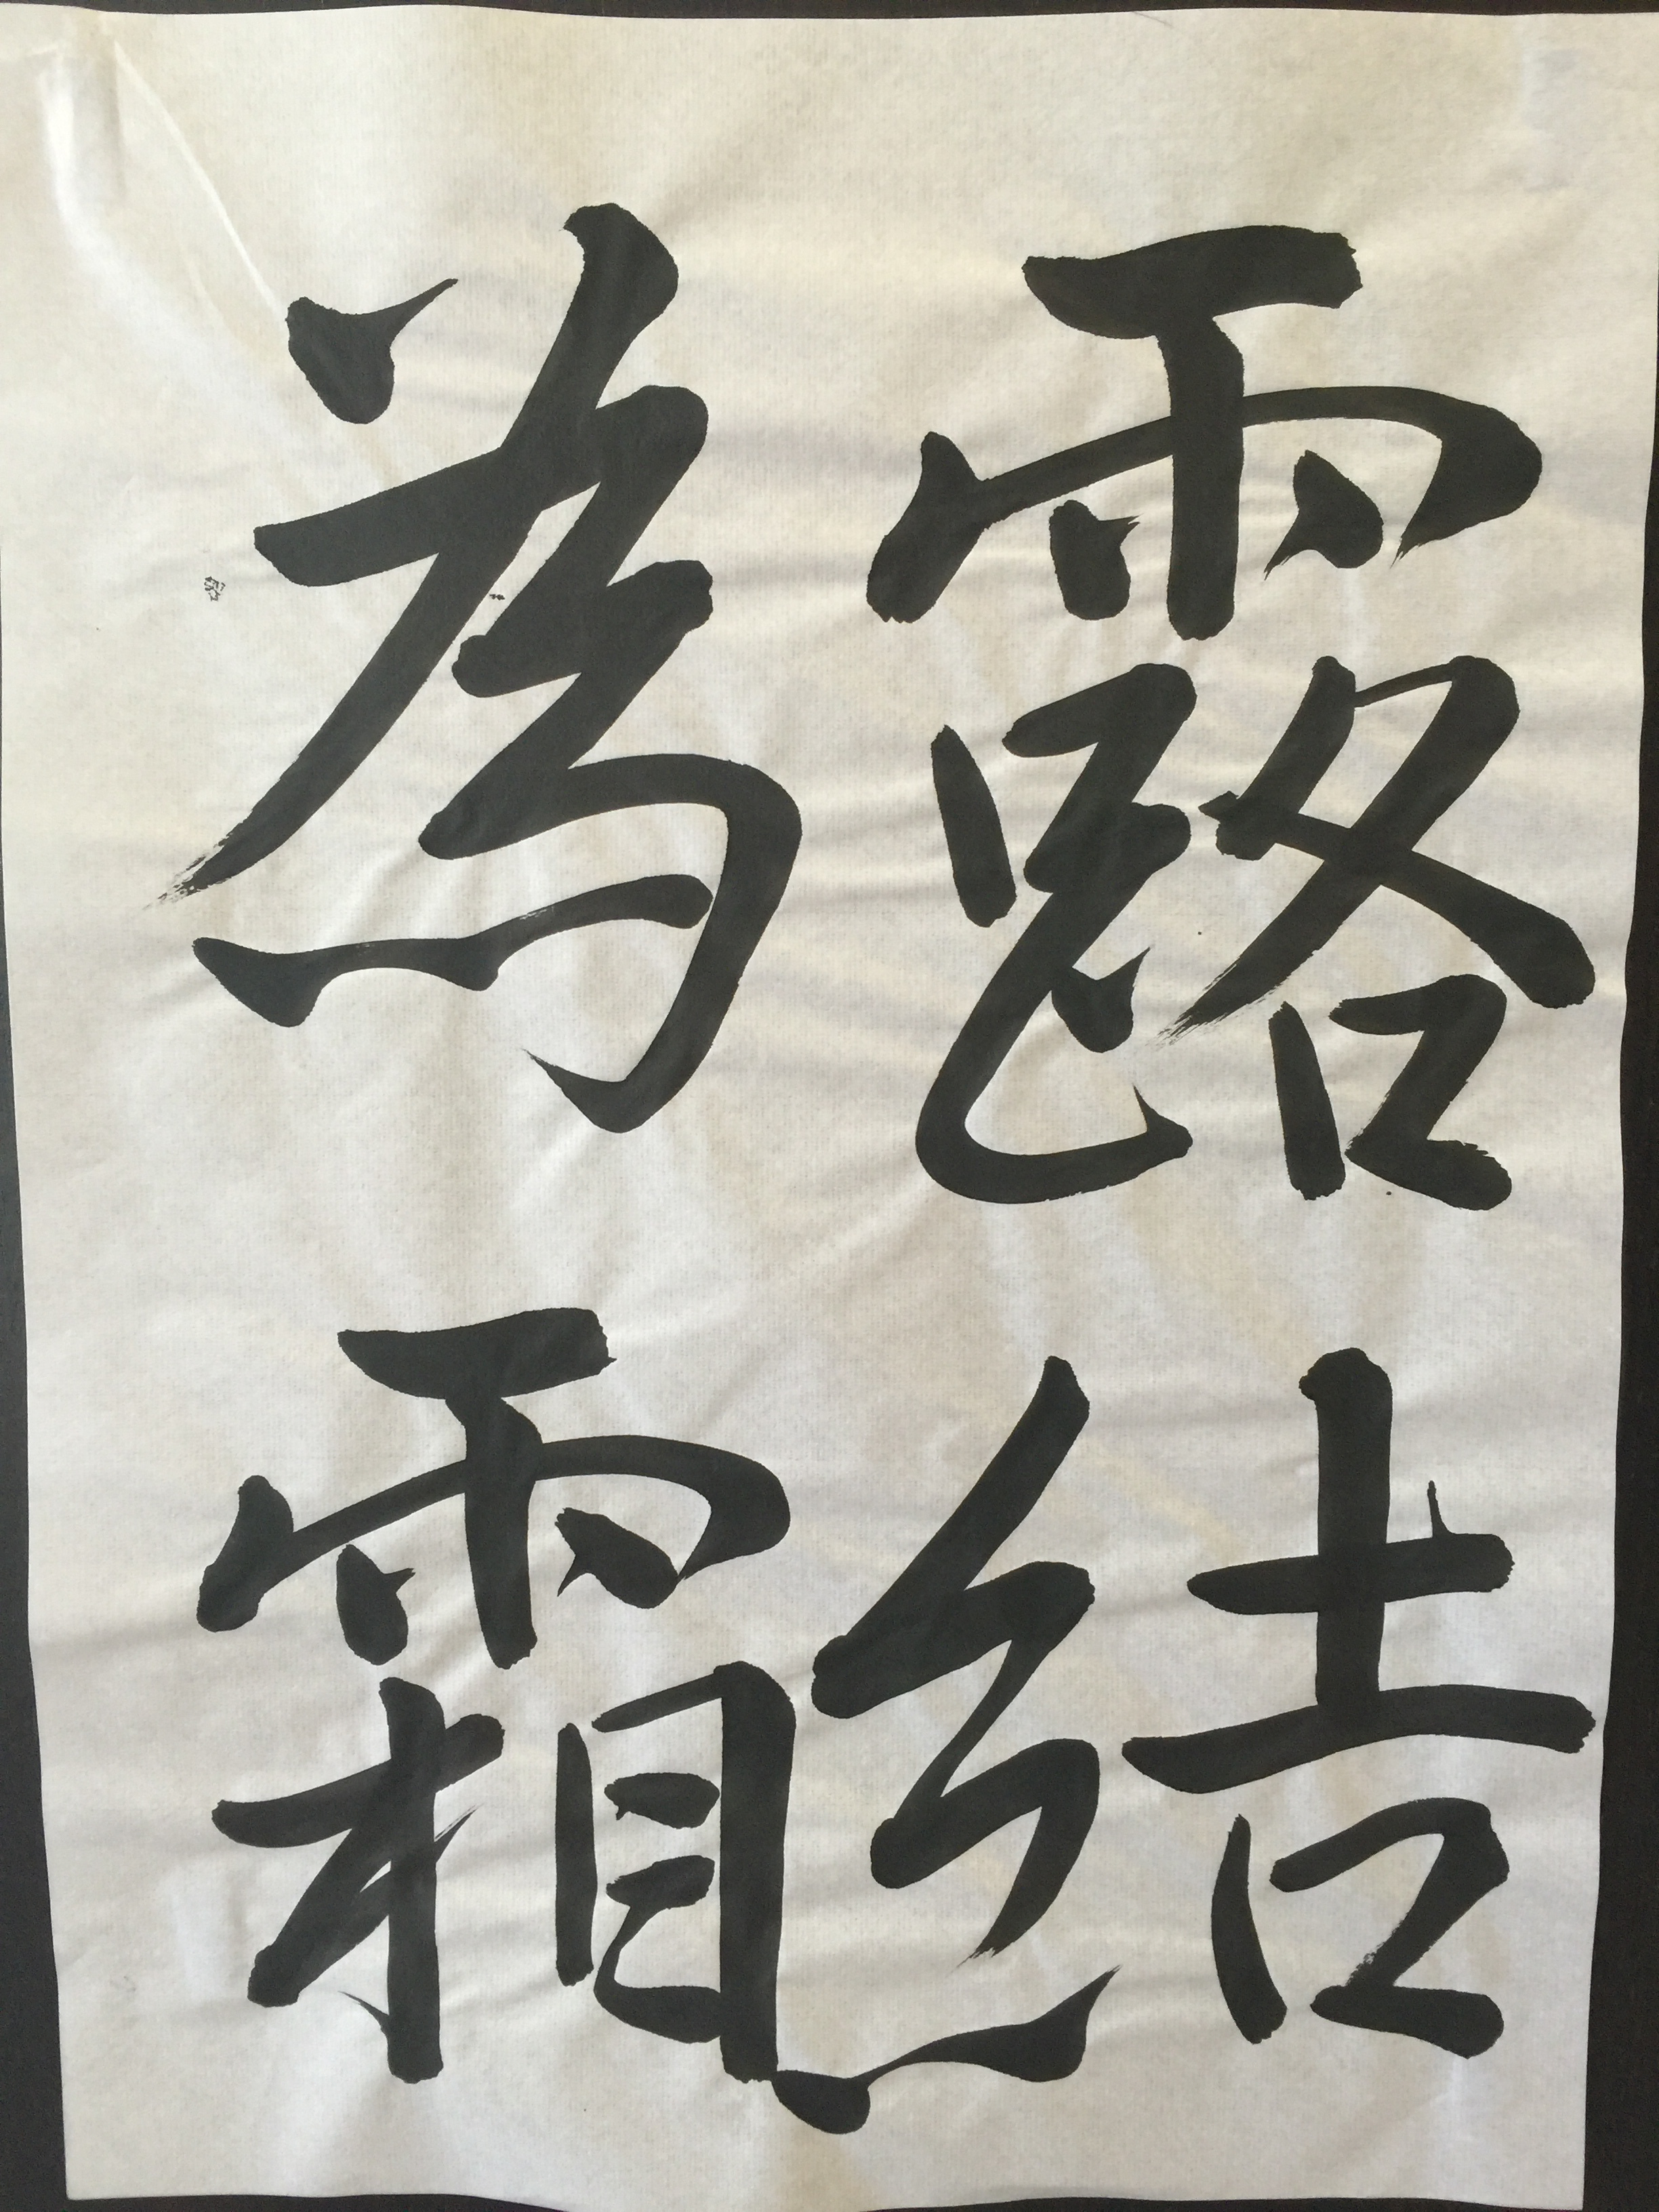 露結
為霜